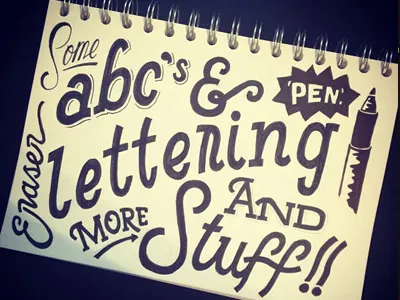 Some
abc's & 'PEN'.
Eraser
lettering
MORE AND
Stuff!!